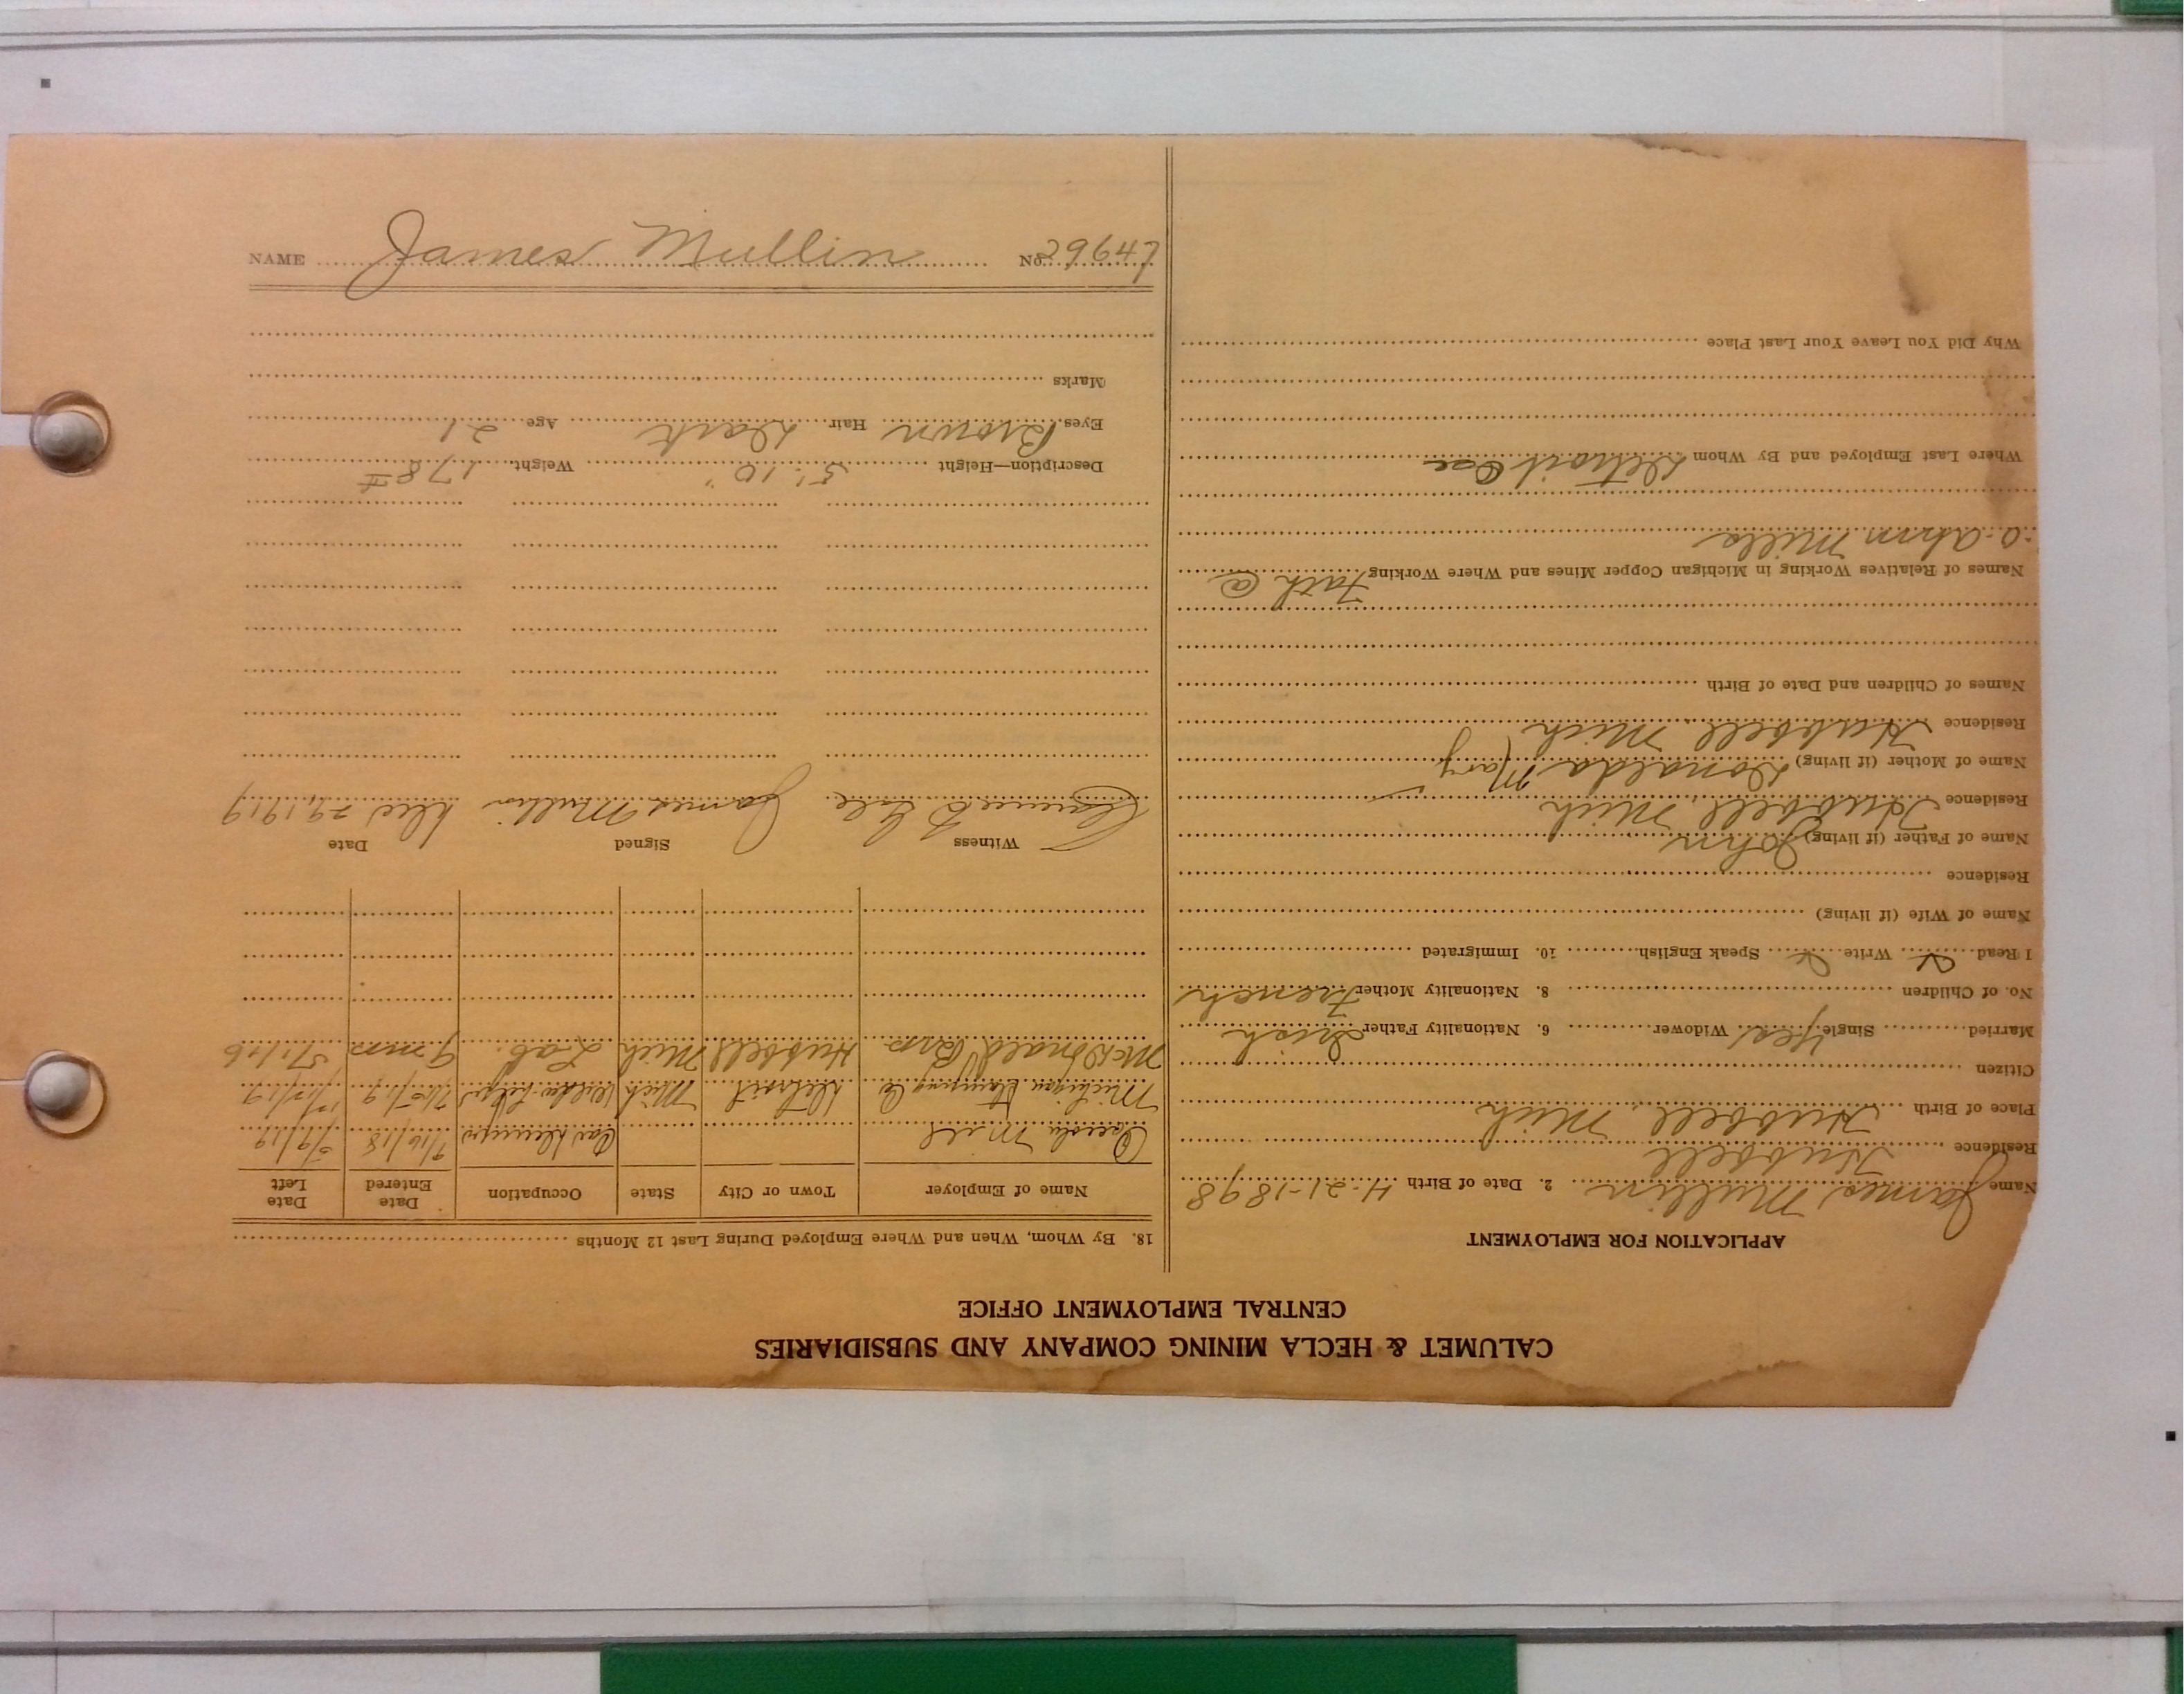 CALUMET & HECLA MINING COMPANY AND SUBSIDIARIES
CENTRAL EMPLOYMENT OFFICE
APPLICATION FOR EMPLOYMENT
Name James Mullin 2. Date of Birth 4-21-1898
Residence Hubbell
Place of Birth Hubbell, Mich
Citizen
Married Single Yes Widower 6. Nationality Father Irish
No. of Children 8. Nationality Mother French
I Read Write Speak English 10. Immigrated
Name of Wife (if living)
Residence
Name of Father (if living) John
Residence Hubbell, Mich
Name of Mother (if living) Donalda Mary
Residence Hubbell Mich
Names of Children and Date of Birth
Names of Relatives Working in Michigan Copper Mines and Where Working Fath @
Mills
Where Last Employed and By Whom Detroit
Why Did You Leave Your Last Place
18. By Whom, When and Where Employed During Last 12 Months
Name of Employer Town or City State Occupation Date Entered Date Left
Osceola Mill 9/16/18 5/9/19
Michigan Stamping Co Detroit Mich Welder helper
McDonald Bros Hubbell Mich Lab. 9 mos
Witness Signed Date
James Mullin Dec 29, 1919
Description—Height 5' 10" Weight 178 #
Eyes Brown Hair Dark Age 21
Marks
NAME James Mullin No. 29647